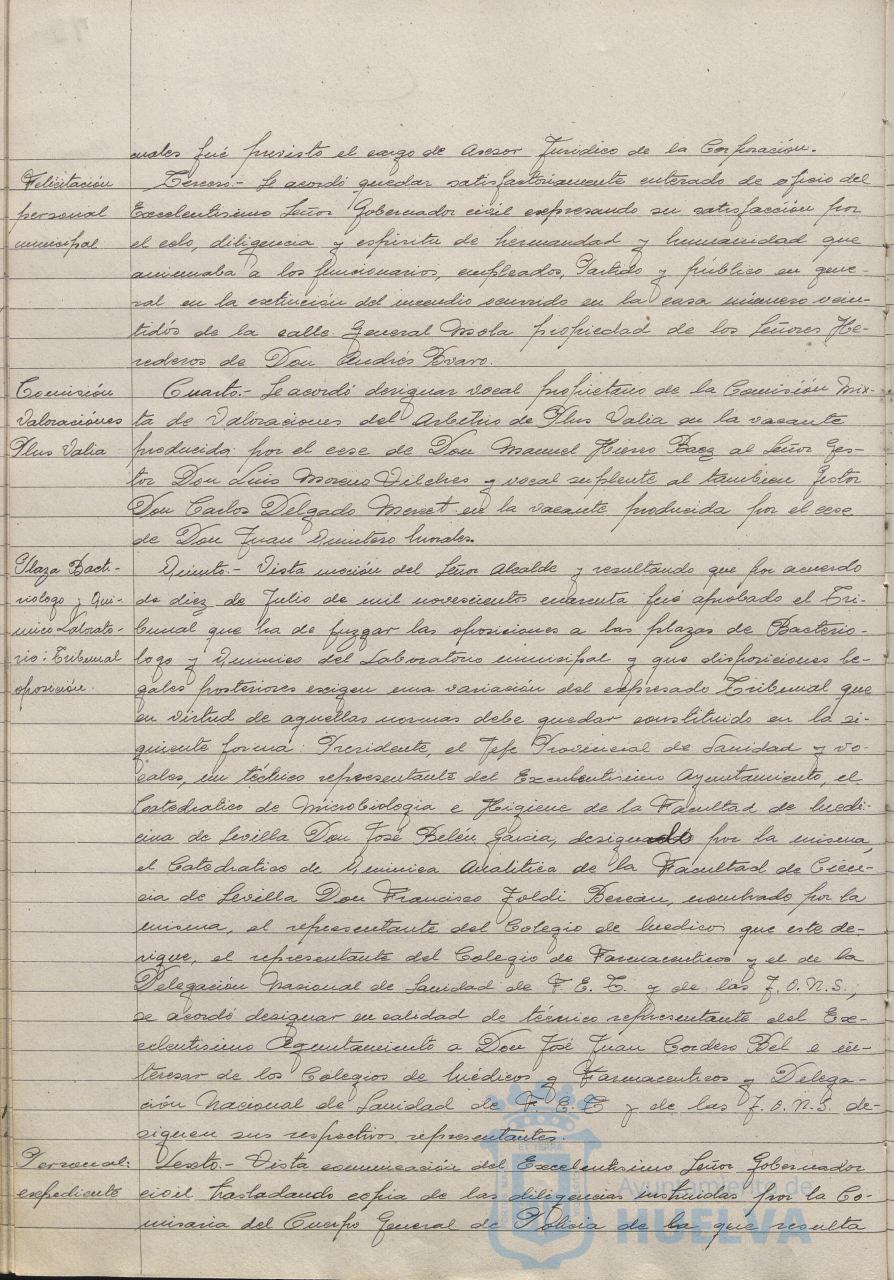 cuales fué provisto el cargo de Asesor Juridico de la Corporación.
Felicitación personal municipal
Tercero.- Se acordó quedar satisfactoriamente enterado de oficio del
Excelentisimo Señor Gobernador civil expresando su satisfacción por
el celo, diligencia y espiritu de hermandad y humanidad que
animaba a los funcionarios, empleados, Partido y público en gene-
ral en la extinción del incendio ocurrido en la casa número vein-
tidós de la calle General Mola propiedad de los Señores He-
rederos de Don Andrés Bravo.
Comisión Valoraciones Plus Valia
Cuarto.- Se acordó designar vocal propietario de la Comisión Mix-
ta de Valoraciones del Arbitrio de Plus Valia en la vacante
producida por el cese de Don Manuel Hierro Baez al Señor Ges-
tor Don Luis Moreno Vilches y vocal suplente al tambien Gestor
Don Carlos Delgado en la vacante producida por el cese
de Don Juan Quintero Morales.
Plaza Bacte-
riologo y Qui-
mico Laborato-
rio: Tribunal
oposición.
Quinto.- Vista moción del Señor Alcalde y resultando que por acuerdo
de diez de Julio de mil novescientos cuarenta fué aprobado el Tri-
bunal que ha de juzgar las oposiciones a las plazas de Bacterio-
logo y Quimico del Laboratorio municipal y que disposiciones le-
gales posteriores exigen una variación del expresado Tribunal que
en virtud de aquellas normas debe quedar constituido en la si-
guiente forma: Presidente, el Jefe Provincial de Sanidad y vo-
cales, un técnico representante del Excelentisimo Ayuntamiento, el
Catedratico de Microbiologia e Higiene de la Facultad de Medi-
cina de Sevilla Don José Belén Garcia, designado por la misma,
el Catedratico de Quimica Analitica de la Facultad de Cien-
cia de Sevilla Don Francisco Yoldi Bereau, nombrado por la
misma, el representante del Colegio de Medicos que este de-
signe, el representante del Colegio de Farmaceuticos y el de la
Delegación Nacional de Sanidad de F.E.T. y de las J.O.N.S.;
se acordó designar en calidad de técnico representante del Ex-
celentisimo Ayuntamiento a Don José Juan Cordero Bel e in-
teresar de los Colegios de Médicos y Farmaceuticos y Delega-
ción Nacional de Sanidad de F.E.T y de las J.O.N.S. de-
siguen sus respectivos representantes.
Personal:
expediente
Sexto.- Vista comunicación del Excelentisimo Señor Gobernador
civil trasladando copia de las diligencias instruidas por la Co-
misaria del Cuerpo General de Policia de la que resulta
Ayuntamiento de
HUELVA